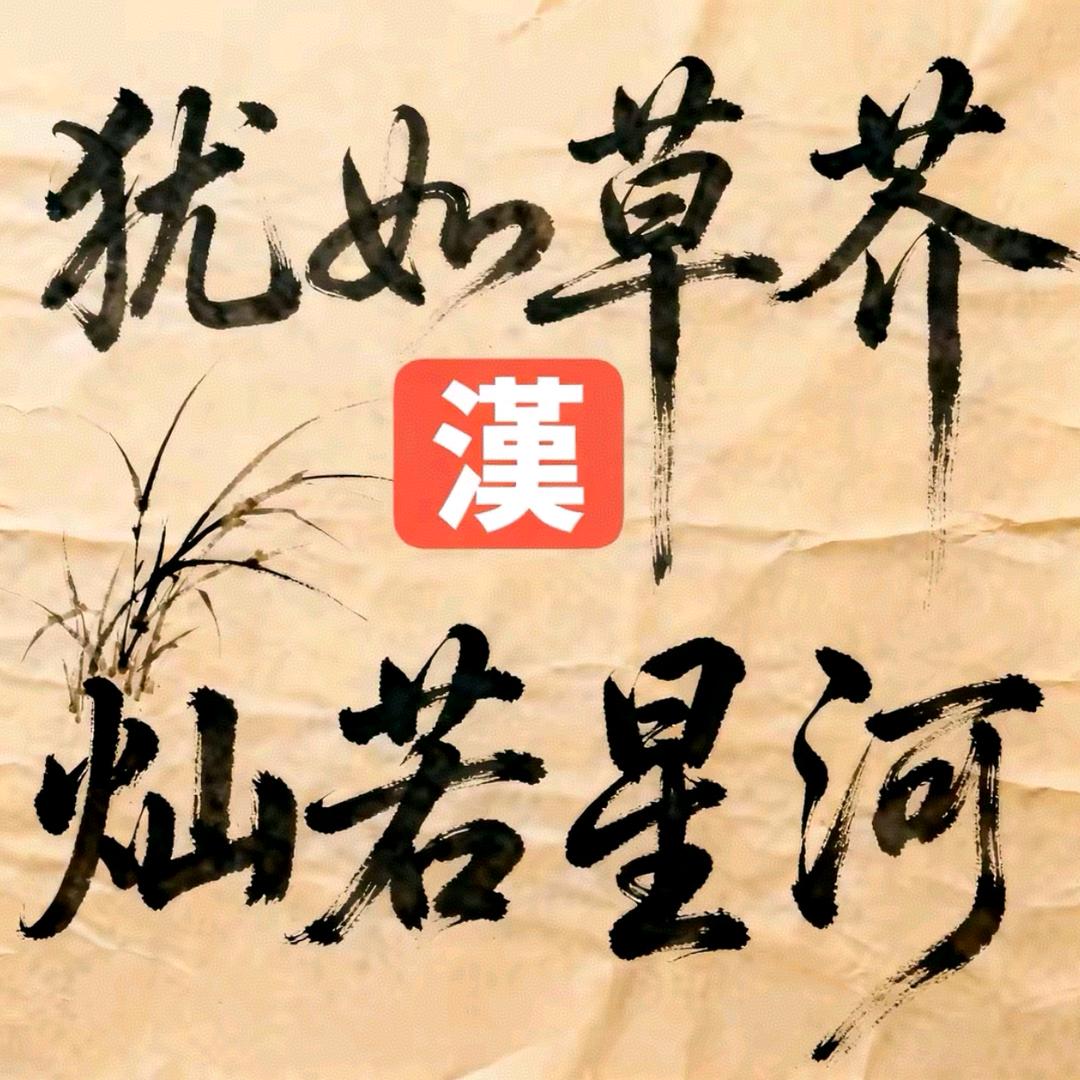 犹如草芥
漢
灿若星河